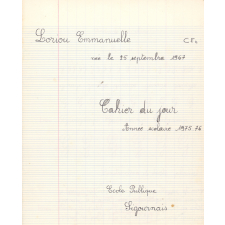 Loriou Emmanuelle CE1
née le 25 septembre 1967
Cahier du jour
Année scolaire 1975.76
Ecole Publique
Sigournais